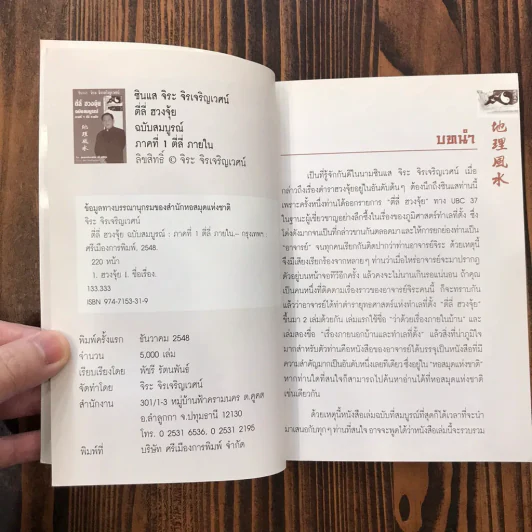 ซินแส จิระ จิรเจริญเวศน์
ตี่ลี่ ฮวงจุ้ย
ฉบับสมบูรณ์
ภาคที่ 1 ตี่ลี่ ภายใน
ลิขสิทธิ์ © จิระ จิรเจริญเวศน์
地理風水
ข้อมูลทางบรรณานุกรมของสำนักหอสมุดแห่งชาติ
จิระ จิรเจริญเวศน์
ตี่ลี่ ฮวงจุ้ย ฉบับสมบูรณ์ : ภาคที่ 1 ตี่ลี่ ภายใน.– กรุงเทพฯ :
ศรีเมืองการพิมพ์, 2548.
220 หน้า
1. ฮวงจุ้ย I. ชื่อเรื่อง.
133.333
ISBN 974-7153-31-9
พิมพ์ครั้งแรก ธันวาคม 2548
จำนวน 5,000 เล่ม
เรียบเรียงโดย พัชรี รัตนพันธ์
จัดทำโดย จิระ จิรเจริญเวศน์
สำนักงาน 301/1-3 หมู่บ้านฟ้าครามนคร ต.คูคต
อ.ลำลูกกา จ.ปทุมธานี 12130
โทร. 0 2531 6536, 0 2531 2195
พิมพ์ที่ บริษัท ศรีเมืองการพิมพ์ จำกัด
地理風水
บทนำ
เป็นที่รู้จักกันดีในนามซินแส จิระ จิรเจริญเวศน์ เมื่อ
กล่าวถึงเรื่องตำราฮวงจุ้ยอยู่ในอันดับต้นๆ ต้องนึกถึงซินแสท่านนี้
เพราะครั้งหนึ่งท่านได้ออกรายการ “ตี่ลี่ ฮวงจุ้ย” ทาง UBC 37
ในฐานะผู้เชี่ยวชาญอย่างลึกซึ้งในเรื่องของภูมิศาสตร์ทำเลที่ตั้ง ซึ่ง
โด่งดังมากจนเป็นที่กล่าวขานกันตลอดมาและให้การยกย่องท่านเป็น
“อาจารย์” จนทุกคนเรียกกันติดปากว่าท่านอาจารย์จิระ ด้วยเหตุนี้
จึงมีเสียงเรียกร้องจากหลายๆ ท่านว่าเมื่อไหร่อาจารย์จะมาปรากฏ
ตัวอยู่บนหน้าจอทีวีอีกครั้ง แล้วคงจะไม่นานเกินรอแน่นอน ถ้าคุณ
เป็นคนหนึ่งที่ติดตามเรื่องราวของอาจารย์จิระคนนี้ ก็จะทราบกัน
แล้วว่าอาจารย์ได้ทำตำรายุทธศาสตร์แห่งทำเลที่ตั้ง “ตี่ลี่ ฮวงจุ้ย”
ขึ้นมา 2 เล่มด้วยกัน เล่มแรกใช้ชื่อ “ว่าด้วยเรื่องภายในบ้าน” และ
เล่มสองชื่อ “เรื่องภายนอกบ้านและทำเลที่ตั้ง” แล้วสิ่งที่น่าภูมิใจ
มากสำหรับตัวท่านคือหนังสือของอาจารย์ได้บรรจุเป็นหนังสือที่มี
ความสำคัญมากเป็นอันดับหนึ่งเลยทีเดียว ซึ่งอยู่ใน “หอสมุดแห่งชาติ”
หากท่านใดที่สนใจก็สามารถไปค้นหาอ่านได้ที่หอสมุดแห่งชาติ
เช่นเดียวกัน
ด้วยเหตุนี้หนังสือเล่มฉบับที่สมบูรณ์ที่สุดก็ได้เวลาที่จะนำ
มาเสนอกับทุกๆ ท่านที่สนใจ อาจจะพูดได้ว่าหนังสือเล่มนี้จะรวบรวม